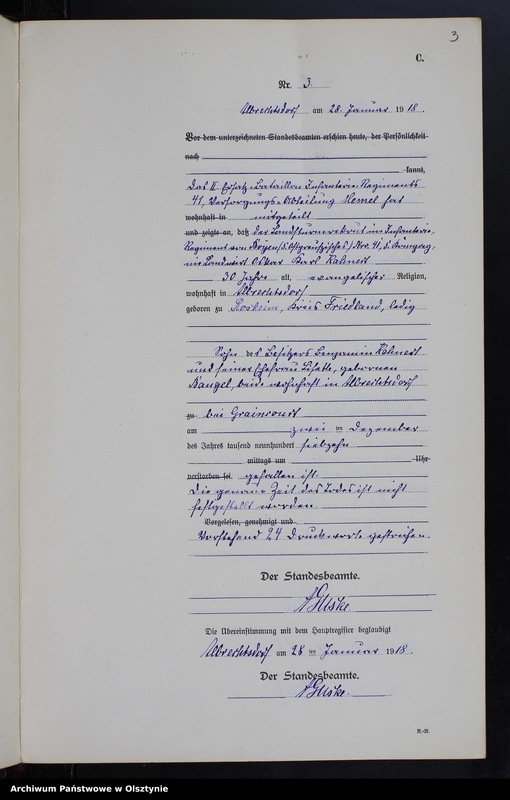 3
C.
Nr. 3.
Albrechtsdorf am 28. Januar 1918.
Vor dem unterzeichneten Standesbeamten erschien heute, der Persönlichkeit
nach
kannt,
Das II. Ersatz-Bataillon Infanterie-Regiments
41, Versorgungs-Abteilung Memel hat
wohnhaft in mitgeteilt
und zeigte an, daß der Landsturmrekrut im Infanterie-
Regiment von Boyen (5. Ostpreußisches) Nro. 41, 5. Kompag-
nie Landwirt Oskar Karl Kahnert
30 Jahre alt, evangelischer Religion,
wohnhaft in Albrechtsdorf
geboren zu Rosheim, Kreis Friedland, ledig
Sohn des Besitzers Benjamin Kahnert
und seiner Ehefrau Lisette, geborenen
Bangel, beide wohnhaft in Albrechtsdorf
zu bei Graincourt
am zwei ten Dezember
des Jahres tausend neunhundert siebzehn
mittags um Uhr
verstorben sei. gefallen ist.
Die genaue Zeit des Todes ist nicht
festgestellt worden.
Vorgelesen, genehmigt und
Vorstehend 24 Druckworte gestrichen.
Der Standesbeamte.
Die Übereinstimmung mit dem Hauptregister beglaubigt
Albrechtsdorf am 28 ten Januar 1918.
Der Standesbeamte.
R.-R.
Archiwum Państwowe w Olsztynie